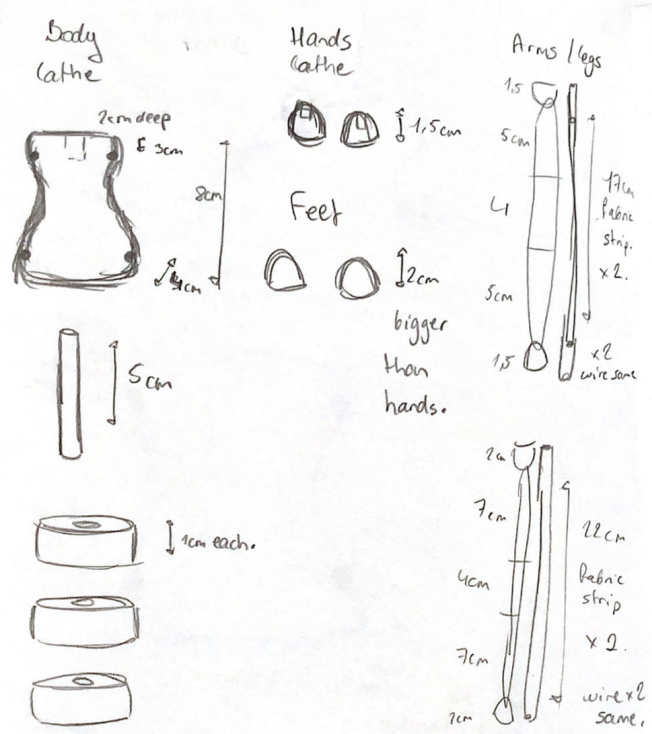 Body
Lathe
2cm deep
3cm
8cm
4cm
5cm
1cm each.
Hands
Lathe
1,5cm
Feet
2cm
bigger
than
hands.
Arms / legs
1,5
5cm
4
5cm
1,5
17cm
fabric
strip.
x2.
x2
wire same
2cm
7cm
4cm
7cm
2cm
22cm
fabric
strip
x 2.
wire x2
same.